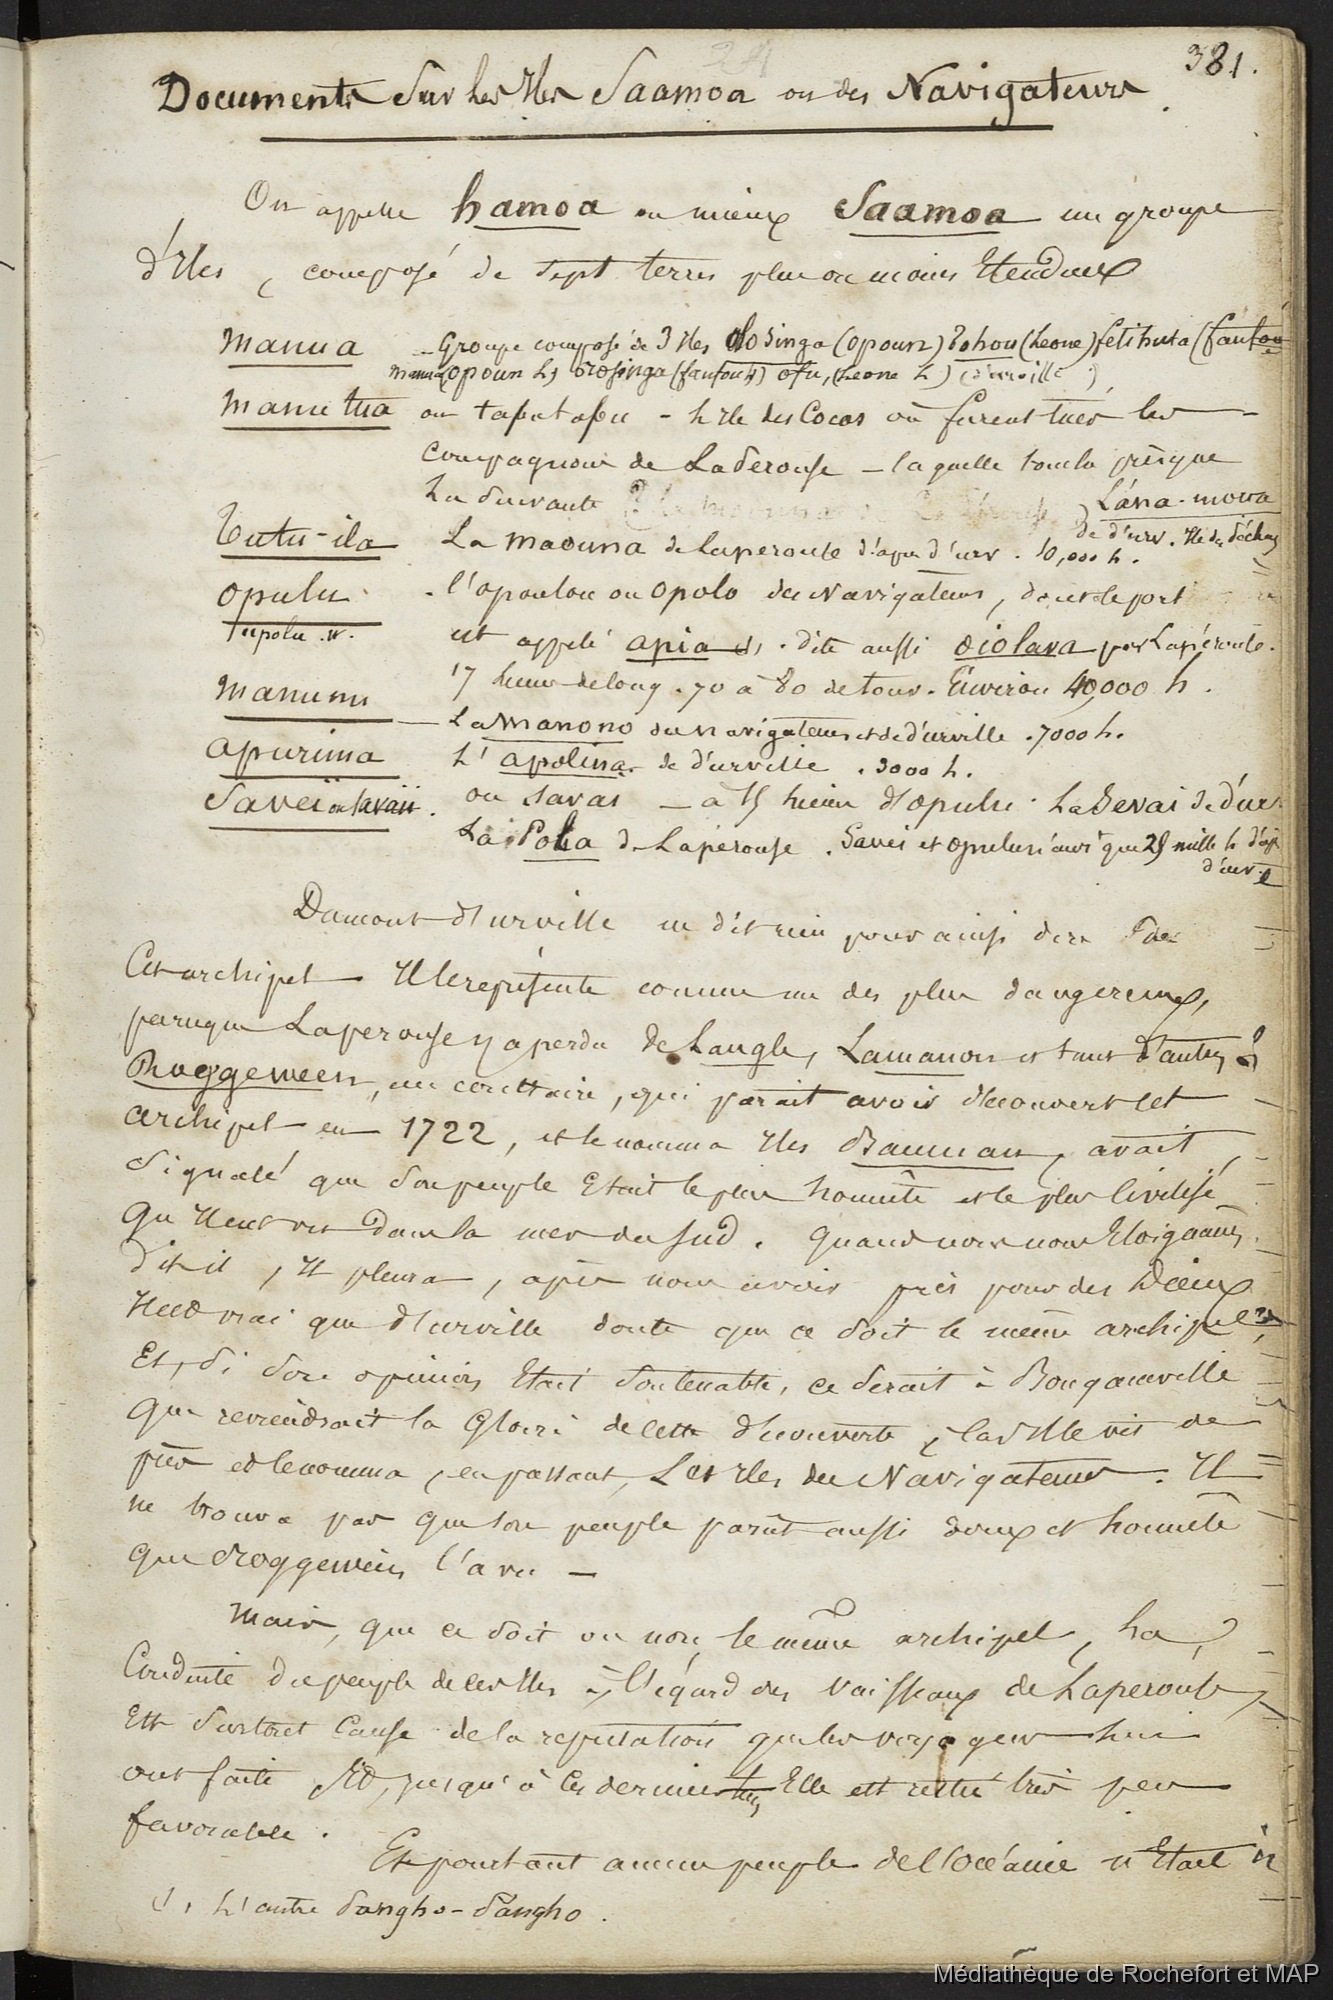 381.
Documents sur les Iles Saamoa ou des Navigateurs.
On appelle hamoa ou mieux Saamoa un groupe
d'Iles, composé de sept terres plus ou moins Etendues
Manua - Groupe composé de 3 Iles Olosinga (opoun) (Leone) fetihuta (fanfoue
(opoun L) orosinga (fanfou L) ofu, (Leone L) (d'urville)
Manu tua ou tafutafu - L'Ile des Cocos où furent tués les
compagnons de Laperouse - laquelle touche presque
La suivante
Lána-moua
de d'urv. Ile du
Tutu-ila La maouna de Laperouse d'apr d'urv. 10,000 h.
opulu - l'opoulou ou opolo des Navigateurs, dont le port
Supolu .W. est appelé apia (1) . dite aussi oiolava par Lapérouse.
17 lieues de long . 70 à 80 de tour . Environ 40,000 h.
Manunu - La manono des navigateurs et de d'urville . 7000 h.
apurima L' apolina de d'urville . 3000 h.
Saveii ou Savaii . ou Savai - a 15 lieues d'opulu . La Sevai de d'ur.
La Pola de Laperouse . Savei et opulu n'auraient que 25 mille h d'ap
d'urv.
Dumont d'urville ne dit rien pour ainsi dire de
Cet archipel Il le représente comme un des plus dangereux,
parceque Laperouse y a perdu de Langle, Lamanon et tant d'autres
Roggeween, au contraire, qui parait avoir découvert cet
archipel en 1722, et le nomma Iles Bauman, avait
signalé que son peuple Etait le plus honnête et le plus civilisé
qu'Il eut vu dans la mer du sud. Quand nous nous Eloignames,
dit-il, Il pleura, après nous avoir pris pour des Dieux
Il est vrai que d'urville doute que ce soit le même archipel,
Et, si son opinion Etait soutenable, ce serait à Bougainville
que reviendrait la Gloire de cette découverte, car Il le vit de
près et le nomma, en passant, Les Iles des Navigateurs. Il
ne trouva pas que son peuple parut aussi doux et honnête
que Roggewein l'a vu -
Mais, que ce soit ou non, le même archipel, La
Conduite du peuple de ces Iles à l'égard des vaisseaux de Laperouse,
Est surtout cause de la reputation que les voyageurs lui
ont faite Et, jusqu'à ces derniers tems, Elle est restée très peu
favorable.
Et pourtant aucun peuple de l'Océanie n'Etait
(1) L'autre Sangho-Sangho.
Médiathèque de Rochefort et MAP